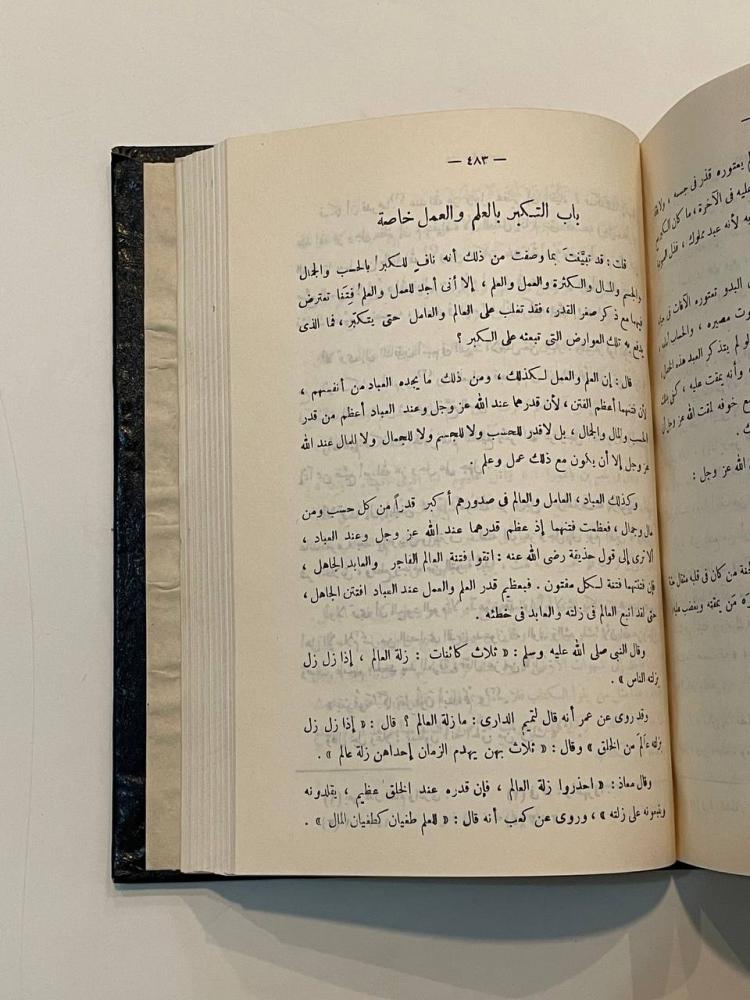 — ٤٨٣ —
باب التكبر بالعلم والعمل خاصة
قلت : قد تبيَّنتَ بما وصفت من ذلك أنه نافٍ للكبر بالحسب والجمال
والجسم والمال والكثرة والعمل والعلم ، إلا أنى أجد للعمل والعلم فِتَنا تعترض
فيهما مع ذكر صغر القدر ، فقد تغلب على العالم والعامل حتى يتكبر ، فما الذى
يدفع به تلك العوارض التى تبعثه على الكبر ؟
قال : إن العلم والعمل لكذلك ، ومن ذلك ما يجده العباد من أنفسهم ،
لأن فتنتهما أعظم الفتن ، لأن قدرهما عند الله عز وجل وعند العباد أعظم من قدر
الحسب والمال والجمال ، بل لاقدر للحسب ولا للجسم ولا للجمال ولا للمال عند الله
عز وجل إلا أن يكون مع ذلك عمل وعلم .
وكذلك العباد ، العامل والعالم فى صدورهم أكبر قدراً من كل حسب ومن
مال وجمال ، فعظمت فتنتهما إذ عظم قدرهما عند الله عز وجل وعند العباد ،
ألا ترى إلى قول حذيفة رضى الله عنه : اتقوا فتنة العالم الفاجر والعابد الجاهل ،
فإن فتنتهما فتنة لكل مفتون . فبعظيم قدر العلم والعمل عند العباد افتتن الجاهل ،
حتى لقد اتبع العالم فى زلته والعابد فى خطئه .
وقال النبى صلى الله عليه وسلم : « ثلاث كائنات : زلة العالم ، إذا زل زل
بزلته الناس » .
وقد روى عن عمر أنه قال لتميم الدارى : ما زلة العالم ؟ قال : « إذا زل زل
بزلته عالَم من الخلق » وقال : « ثلاث بهن يهدم الزمان إحداهن زلة عالم » .
وقال معاذ : « احذروا زلة العالم ، فإن قدره عند الخلق عظيم ، يقلدونه
ويتبعونه على زلته » ، وروى عن كعب أنه قال : « للعلم طغيان كطغيان المال » .